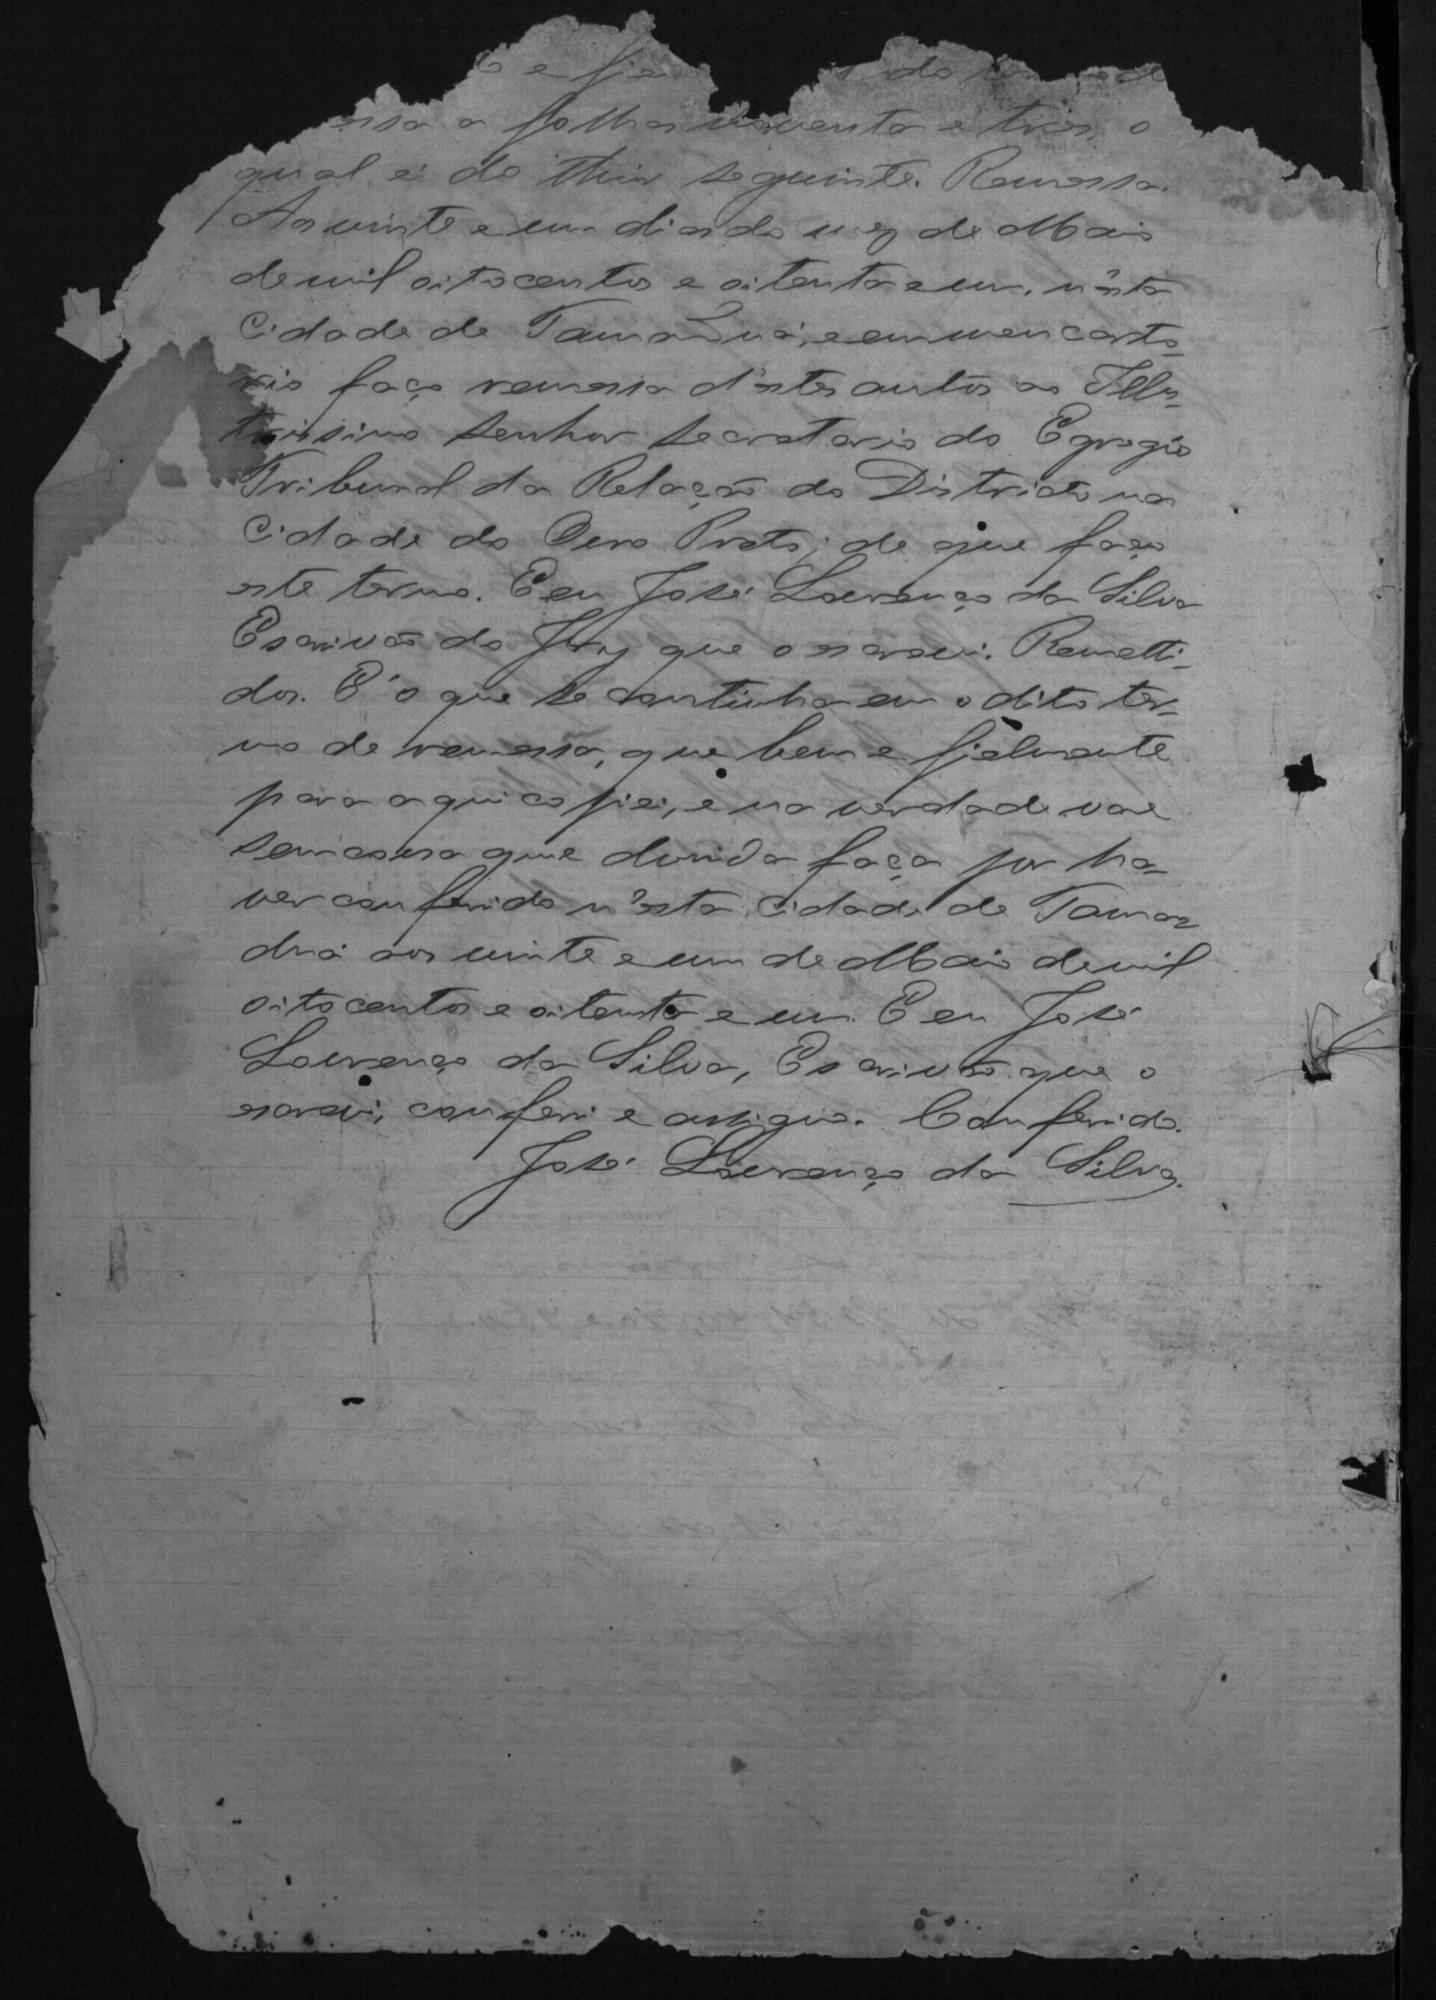 e fie do
essa a folhas noventa e tres, o
qual é do thior seguinte. Remessa.
Aos vinte e um dias do mez de Maio
de mil oitocentos e oitenta e um, n'esta
Cidade de Tamanduá, e em meu carto-
rio faço remessa d'estes autos ao Illus-
trissimo Senhor Secretario do Egregio
Tribunal da Relação do Districto na
Cidade do Ouro Preto; de que faço
este termo. E eu José Lourenço da Silva
Escrivão do Jury que o escrevi. Remetti-
dos. E' o que se continha em o dito ter-
mo de remessa, que bem e fielmente
para aqui copiei, e na verdade vae
sem cousa que duvida faça por ha-
ver conferido n'esta Cidade de Taman
duá aos vinte e um de Maio de mil
oitocentos e oitenta e um. E eu José
Lourenço da Silva, Escrivão que o
escrevi, conferi e assigno. Conferido.
José Lourenço da Silva.